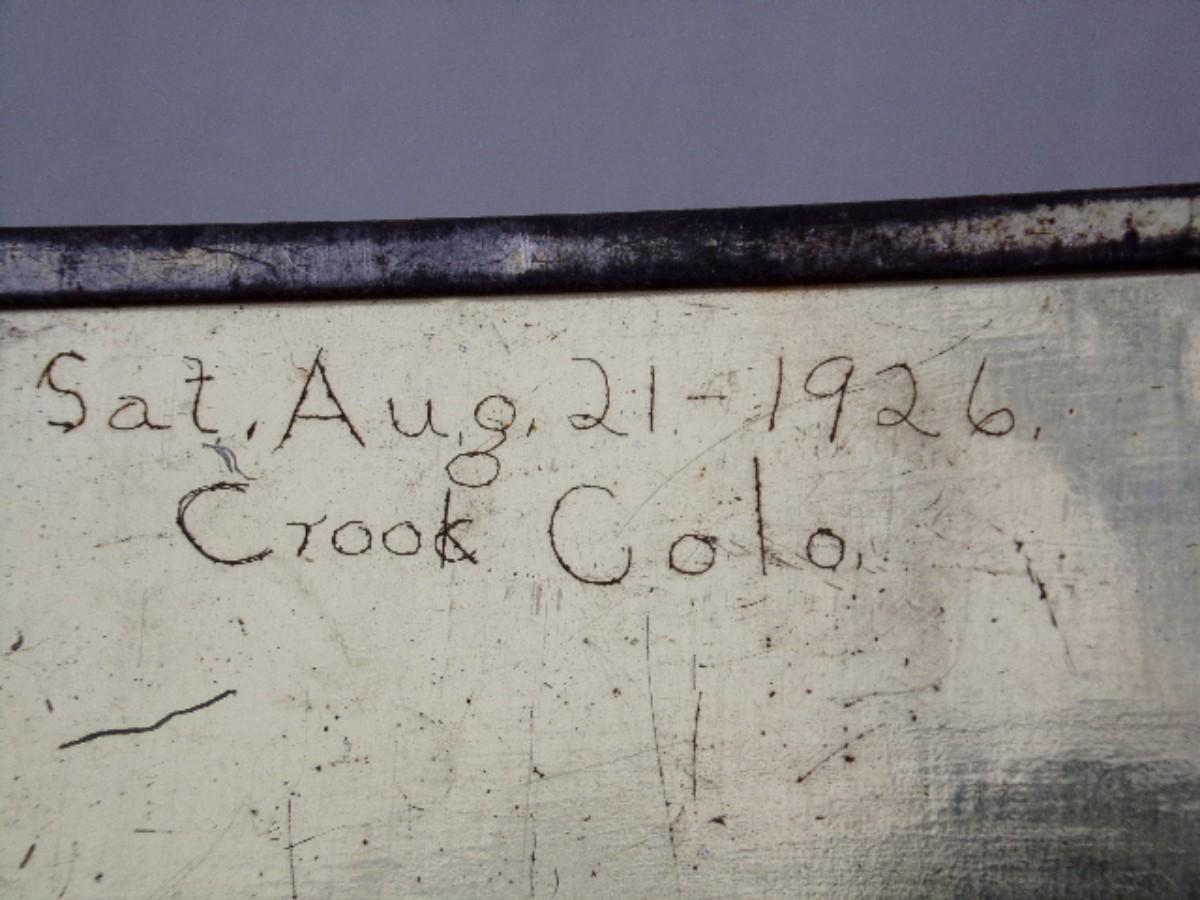 Sat. Aug. 21 - 1926.
Crook Colo.